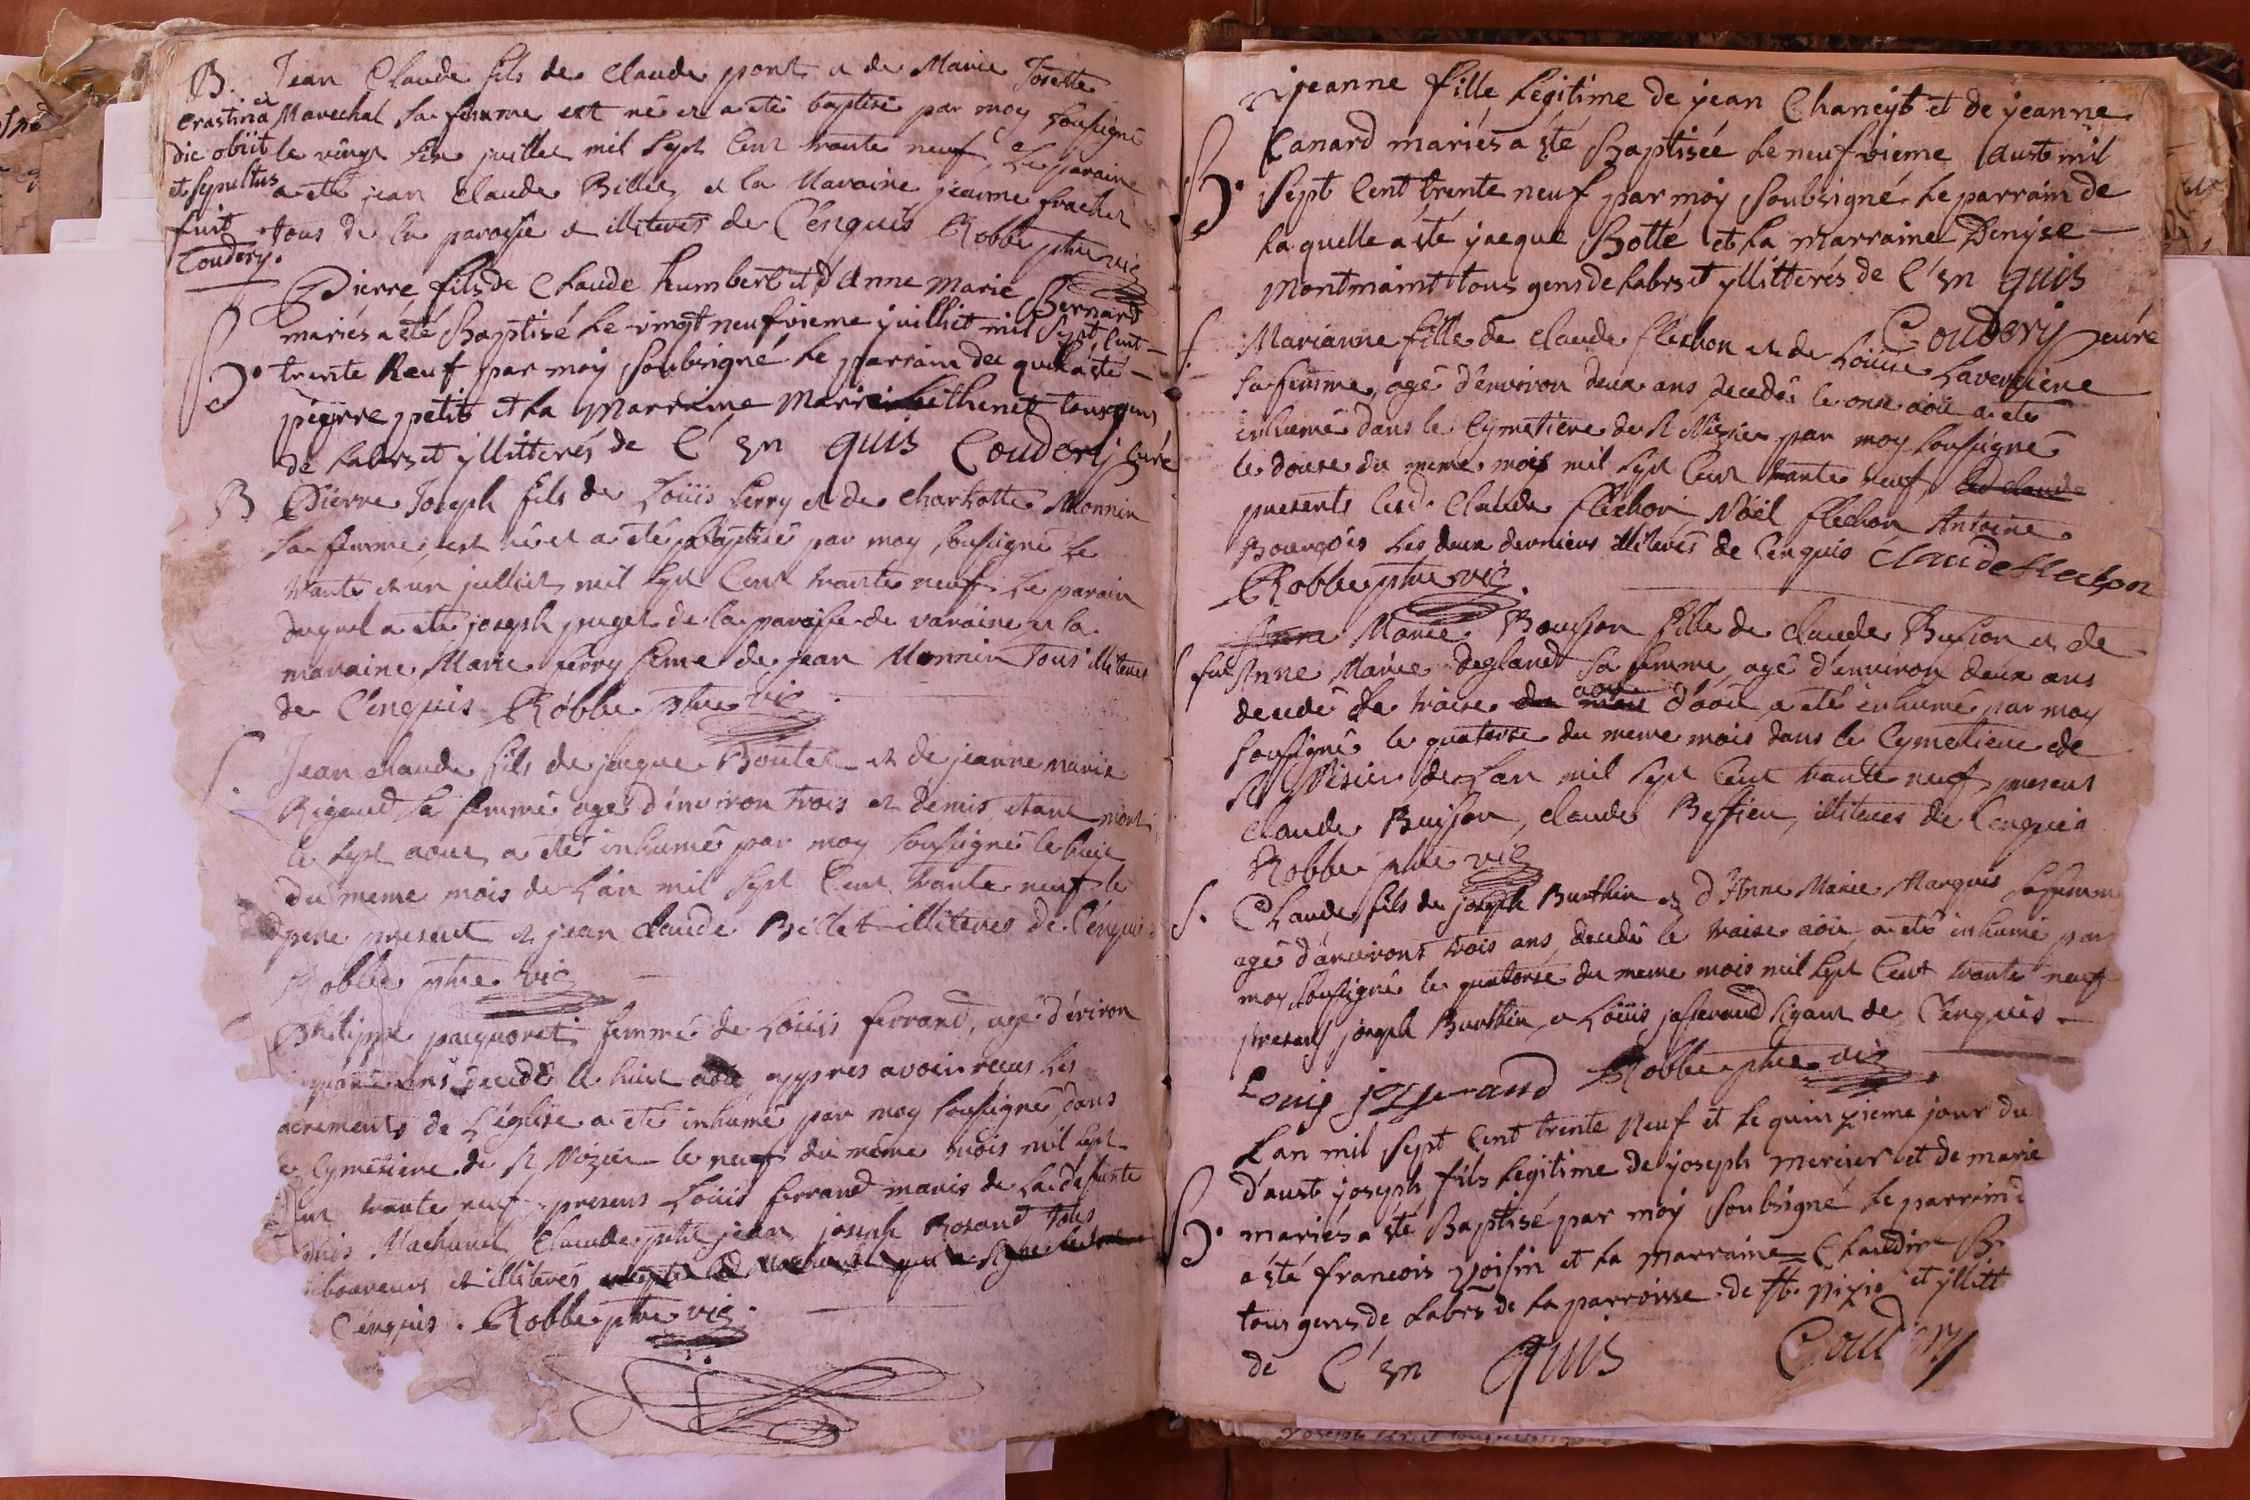 B. Jean Claude fils de Claude pont et de Marie Josette
Marechal sa femme est né et a eté baptisé par moy soussigné
le vingt six juillet mil sept cent trante neuf, Le paraine
a eté jean Claude Billet et la Maraine jeanne frachet
tous de la paroisse et illiterés de C'enquis Robbe ptre vic
crastina
die obiit
et sepultus
fuit
Coudery.
Pierre fils de Claude humbert et d'Anne Marie Bernard
mariés a été Baptisé le vingt neufvieme juilliet mil Sept Cent
B. trente Neuf par moy soubsigné le parrain de quel a été
pierre petit et la Marraine Marie Lethenet tous gens
de Labrs et yllitterés de C'en quis Coudery Curé
B Pierre Joseph fils de Loüis ferry et de Charlotte Monnin
sa femme, est né et a eté Baptisé par moy soussigné Le
trante et un julliet mil sept Cent trante neuf Le parain
duquel a eté joseph puget de la paroisse de varaine et la
maraine Marie ferry feme de jean Monnin tous illiterés
de C'enquis Robbe ptre vic
S. Jean claude fils de jacque Boutet et de jeanne marie
Rigaud sa femme agé d'environ trois et demis, etant mort
le sept aout, a eté inhumé par moy soussigné le huit
du meme mois de L'an mil sept Cent trante neuf le
pere present et jean Claude Billet illiterés de C'enquis
Robbe ptre vic
Philippe pacquoret femme de Loüis ferrand, agé d'eviron
ans decedé le huit aout appres avoir reçus les
acrements de L'église a eté inhumé par moy soussigné, dans
le Cymetiere de St Nizier le neuf du méme mois mil sept
trante neuf presens Loüis ferrand maris de La defunte
Machuret Claude petit jean joseph Rosand tous
boureurs et illiterés
C'enquis. Robbe ptre vic.
jeanne fille Légitime de jean Chaneyt et de jeanne
Canard mariés a été Baptisée le neufvieme Aust mil
B. Sept Cent trente neuf par moy soubsigné le parrain de
la quelle a été jacque Botté et la marraine Denyse
Montmaint tous gens de Labrs et yllitterés de C'en quis
Coudery Curé
S. Marianne fille de claude flechon et de Loüise Laverniere
sa femme, agé d'environ deux ans decedé le onze aout a eté
inhumé dans le Cymetiere de St Nizier par moy soussigné
le douze du meme mois mil sept Cent trante neuf
presents led. Claude flechon, Nöel flechon Antoine
Bourgois les deux derniers illiterés de C'enquis Claude flechon
Robbe ptre vic.
S Marie Bouisson fille de claude Buisson et de
Anne Marie degland sa femme agé d'environ deux ans
decedé le traize d'aout a eté inhumé par moy
soussigné le quatorze du meme mois dans le Cymetiere de
St Nisier de L'an mil sept Cent trante neuf present
Claude Buisson, claude Bessieu, illiterés de Cenquis
Robbe ptre vic
S. Claude fils de joseph Burthin et d'Anne Marie Marquis sa femme
agé d'environt trois ans, decedé le traize aout, a eté inhumé par
moy soussigné le quatorse du meme mois mil sept Cent trante neuf
presens joseph Burthin, et Loüis josserand signant de C'enquis
Louis josserand Robbe ptre vic
L'an mil sept Cent trente Neuf et le quinzieme jour du
d'aust joseph fils legitime de joseph mercier et de marie
B. mariés a été Baptisé par moy soubsigné le parrain
a été francois voisin et la marraine Claudine
tous gens de Labrs de la parroisse de st. nizie et yllitt
de C'en quis Coudery